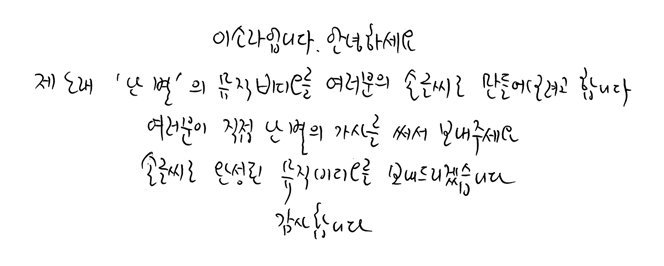 이소라입니다. 안녕하세요
제 노래 '난 별'의 뮤직비디오를 여러분의 손글씨로 만들어보려고 합니다
여러분이 직접 난 별의 가사를 써서 보내주세요
손글씨로 완성된 뮤직비디오를 보여드리겠습니다
감사합니다